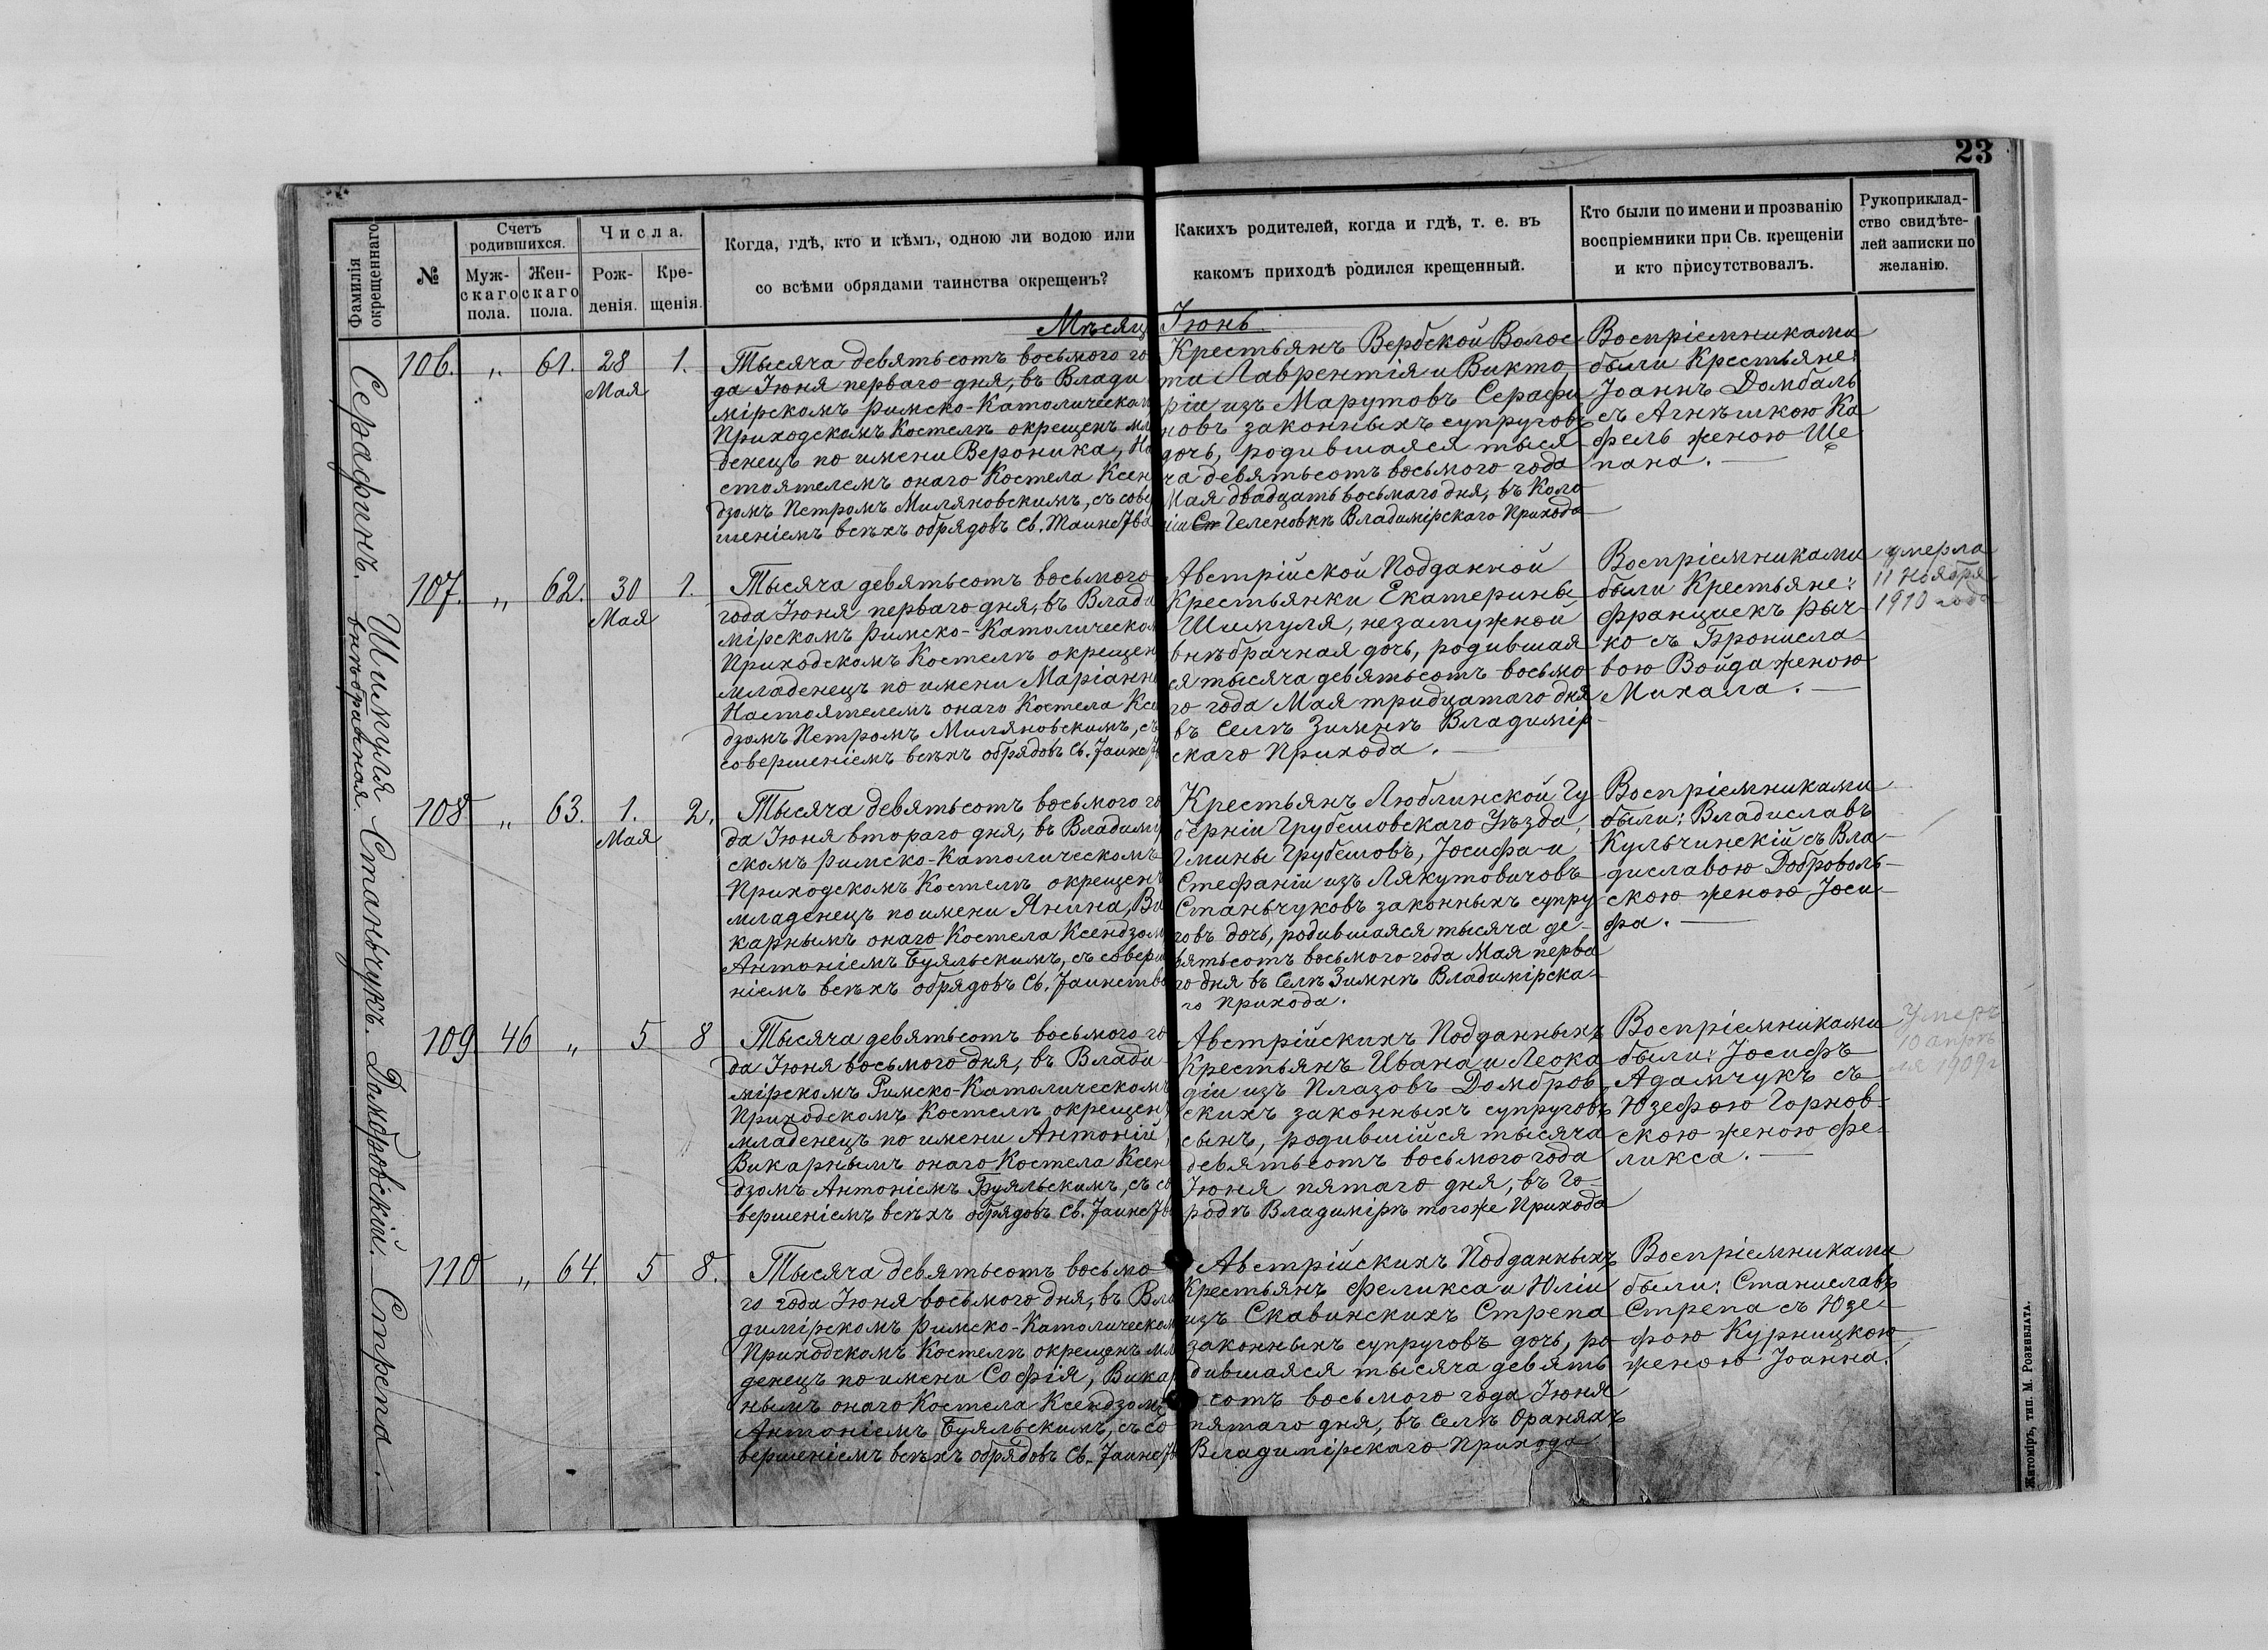 23
Фамилія окрещеннаго.
№
Счетъ родившихся.
Муж-
скаго
пола.
Жен-
скаго
пола.
Числа.
Рож-
денія.
Кре-
щенія.
Когда, гдѣ, кто и кѣмъ, одною ли водою или
со всѣми обрядами таинства окрещенъ?
Какихъ родителей, когда и гдѣ, т. е. въ
какомъ приходѣ родился крещенный.
Кто были по имени и прозванію
воспріемники при Св. крещеніи
и кто присутствовалъ.
Рукоприклад-
ство свидѣте-
лей записки по
желанію.
Мѣсяц Іюнь
Серафинъ.
106. „ 61. 28 1.
Мая
Тысяча девятьсотъ восьмого го
да Іюня перваго дня, въ Влади
мірскомъ Римско-Католическом
Приходскомъ Костелѣ окрещенъ мла
денецъ по имени Вероника, На
стоятелемъ онаго Костела Ксен
дзомъ Петромъ Миляновскимъ, съ совер
шеніемъ всѣхъ обрядовъ Св. Таинства
Крестьянъ Вербской Волос
ти Лаврентія и Викто
ріи изъ Марутовъ Серафи
новъ законныхъ супруговъ
дочь, родившаяся тыся
ча девятьсотъ восьмого года
Мая двадцать восьмаго дня, въ Коло
ніи Геленовкѣ Владимірскаго Прихода
Воспріемниками
были Крестьяне:
Іоаннъ Домбаль
съ Агнѣшкою Ка
фель женою Ще
пана.
Шимуля
внѣбрачная.
107. „ 62. 30 1.
Мая
Тысяча девятьсотъ восьмого
года Іюня перваго дня, въ Влади
мірскомъ Римско-Католическом
Приходскомъ Костелѣ окрещен
младенецъ по имени Маріанна
Настоятелемъ онаго Костела Ксен
дзомъ Петромъ Миляновскимъ, съ
совершеніемъ всѣхъ обрядовъ Св. Таинств
Австрійской Подданной
Крестьянки Екатерины
Шимуля, незамужной
внѣбрачная дочь, родившая
ся тысяча девятьсотъ восьмо
го года Мая тридцатаго дня
въ Селѣ Зимнѣ Владимір-
скаго Прихода.
Воспріемниками
были Крестьяне:
Францискъ Рыч-
ко съ Бронисла-
вою Войда женою
Михала.
умерла
11 Ноября
1910 года
Станьчукъ.
108 „ 63. 1. 2.
Мая
Тысяча девятьсотъ восьмого го
да Іюня втораго дня, въ Владимір
скомъ Римско-Католическомъ
Приходскомъ Костелѣ окрещенъ
младенецъ по имени Янина, Ви
карнымъ онаго Костела Ксендзом
Антоніемъ Буяльскимъ, съ соверше
ніемъ всѣхъ обрядовъ Св. Таинства
Крестьянъ Люблинской Гу
берніи Грубешовскаго Уѣзда,
Гмины Грубешовъ, Іосифа и
Стефаніи изъ Лякутовичовъ
Станьчуковъ законныхъ супру
говъ дочь, родившаяся тысяча де-
вятьсотъ восьмого года Мая перва
го дня въ Селѣ Зимнѣ Владимірска-
го Прихода.
Воспріемниками
были: Владиславъ
Кульчинскій съ Вла-
диславою Доброволь-
скою женою Іоси-
фа.
Домбровскій.
109 46 „ 5 8
Тысяча девятьсотъ восьмого го
да Іюня восьмого дня, въ Влади-
мірскомъ Римско-Католическомъ
Приходскомъ Костелѣ окрещенъ
младенецъ по имени Антоній,
Викарнымъ онаго Костела Ксен
дзомъ Антоніемъ Буяльскимъ, съ со
вершеніемъ всѣхъ обрядовъ Св. Таинства
Австрійскихъ Подданныхъ
Крестьянъ Ивана и Леока
діи изъ Плазовъ Домбров
скихъ законныхъ супруговъ
сынъ, родившійся тысяча
девятьсотъ восьмого года
Іюня пятаго дня, въ Го-
родѣ Владимірѣ тогоже Прихода
Воспріемниками
были: Іосифъ
Адамчукъ съ
Юзефою Горнов-
скою женою Фе-
ликса.
Умеръ
10 апрѣ
ля 1909 г
Стрепа.
110 „ 64. 5 8.
Тысяча девятьсотъ восьмо
го года Іюня восьмого дня, въ Вла
димірскомъ Римско-Католическом
Приходскомъ Костелѣ окрещенъ мла
денецъ по имени Софія, Викар
нымъ онаго Костела Ксендзомъ
Антоніемъ Буяльскимъ, съ со
вершеніемъ всѣхъ обрядовъ Св. Таинств
Австрійскихъ Подданныхъ
Крестьянъ Феликса и Юліи
изъ Скавинскихъ Стрепа
законныхъ супруговъ дочь, ро
дившаяся тысяча девять
сотъ восьмого года Іюня
пятаго дня, въ Селѣ Оранахъ
Владимірскаго Прихода
Воспріемниками
были: Станиславъ
Стрепа съ Юзе-
фою Курницкою
женою Іоанна.
Житоміръ, тип. М. Розенблата.